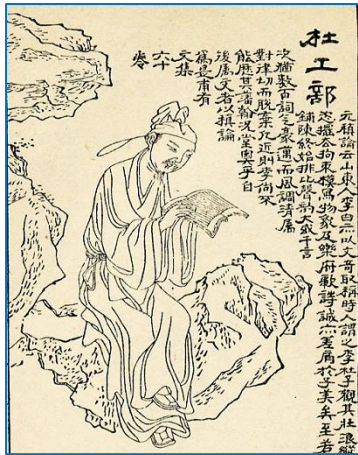 杜工部
元稹論云山東人李白亦以文奇取稱時人謂之李杜予觀其壯浪縱
恣擺去拘束模寫物象及樂府歌詩誠亦差肩於子美矣至若
鋪陳終始排比聲韻大或千言
次猶數百詞气豪邁而風調清屬
對律切而脫棄凡近則李尚不
能歷其藩翰况堂奧乎自
後屬文者以稹論
爲是甫有
文集
六十
卷